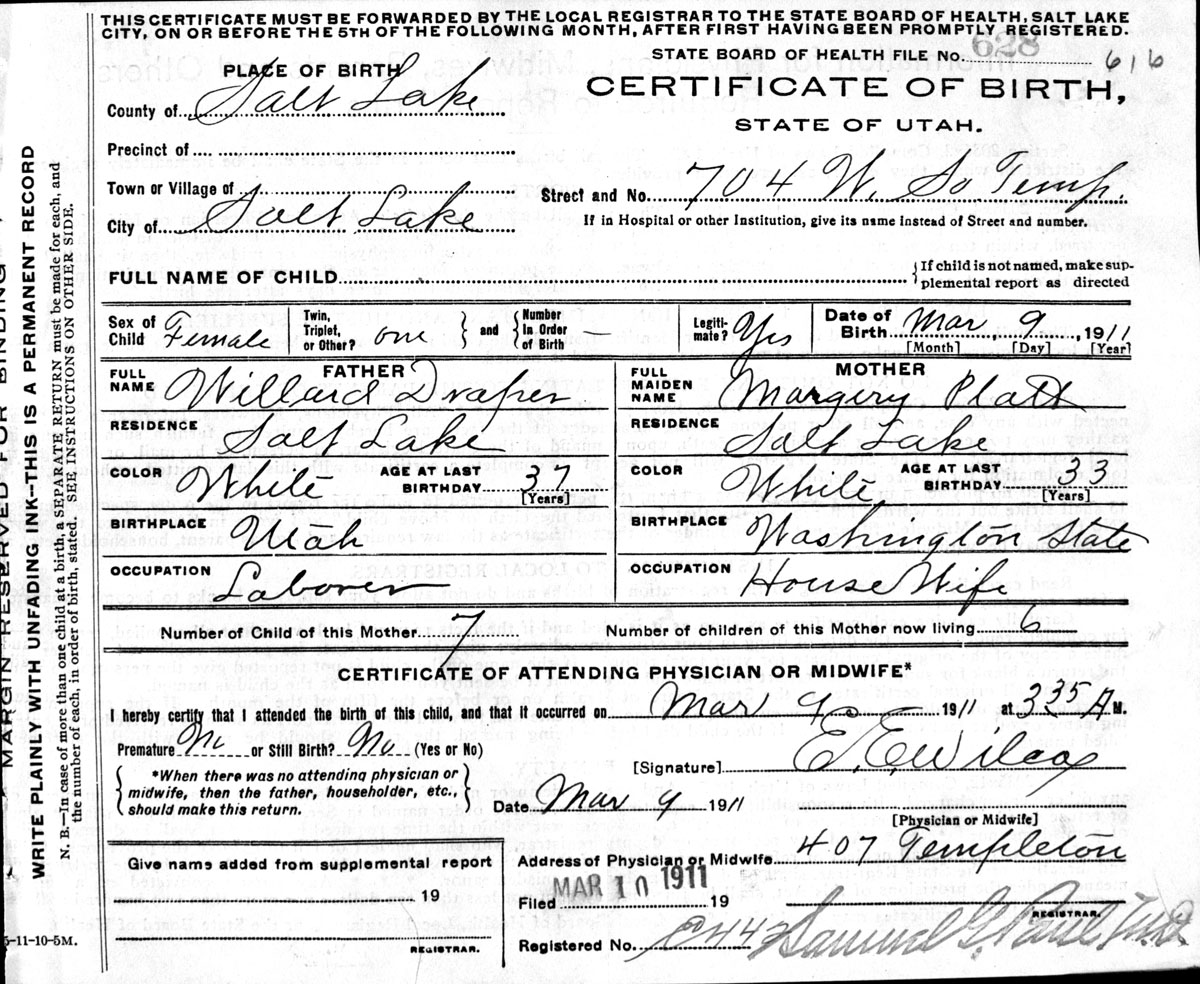 THIS CERTIFICATE MUST BE FORWARDED BY THE LOCAL REGISTRAR TO THE STATE BOARD OF HEALTH, SALT LAKE
CITY, ON OR BEFORE THE 5TH OF THE FOLLOWING MONTH, AFTER FIRST HAVING BEEN PROMPTLY REGISTERED.
STATE BOARD OF HEALTH FILE NO. 628 616
PLACE OF BIRTH
CERTIFICATE OF BIRTH,
STATE OF UTAH.
County of Salt Lake
Precinct of
Town or Village of
Street and No. 704 W. So Temp.
City of Salt Lake
If in Hospital or other Institution, give its name instead of Street and number.
FULL NAME OF CHILD { If child is not named, make sup-
plemental report as directed
Sex of Child Female Twin, Triplet, or Other? one } and { Number In Order of Birth — Legiti-mate? Yes Date of Birth Mar 9, 1911
[Month] [Day] [Year]
FATHER
FULL NAME Willard Draper
RESIDENCE Salt Lake
COLOR White AGE AT LAST BIRTHDAY 37 [Years]
BIRTHPLACE Utah
OCCUPATION Laborer
MOTHER
FULL MAIDEN NAME Margery Platt
RESIDENCE Salt Lake
COLOR White AGE AT LAST BIRTHDAY 33 [Years]
BIRTHPLACE Washington State
OCCUPATION House Wife
Number of Child of this Mother 7 Number of children of this Mother now living 6
CERTIFICATE OF ATTENDING PHYSICIAN OR MIDWIFE*
I hereby certify that I attended the birth of this child, and that it occurred on Mar 9 1911 at 335 A M.
Premature No or Still Birth? No (Yes or No)
[Signature] E. E. Wilcox
*When there was no attending physician or
midwife, then the father, householder, etc.,
should make this return.
Date Mar 9 1911
[Physician or Midwife]
Give name added from supplemental report
19
REGISTRAR.
Address of Physician or Midwife 407 Templeton
Filed MAR 10 1911 19
REGISTRAR.
Registered No. Samuel G. Paul
MARGIN RESERVED FOR BINDING
WRITE PLAINLY WITH UNFADING INK—THIS IS A PERMANENT RECORD
N. B.—In case of more than one child at a birth, a SEPARATE RETURN must be made for each, and
the number of each, in order of birth, stated. SEE INSTRUCTIONS ON OTHER SIDE.
5-11-10-5M.